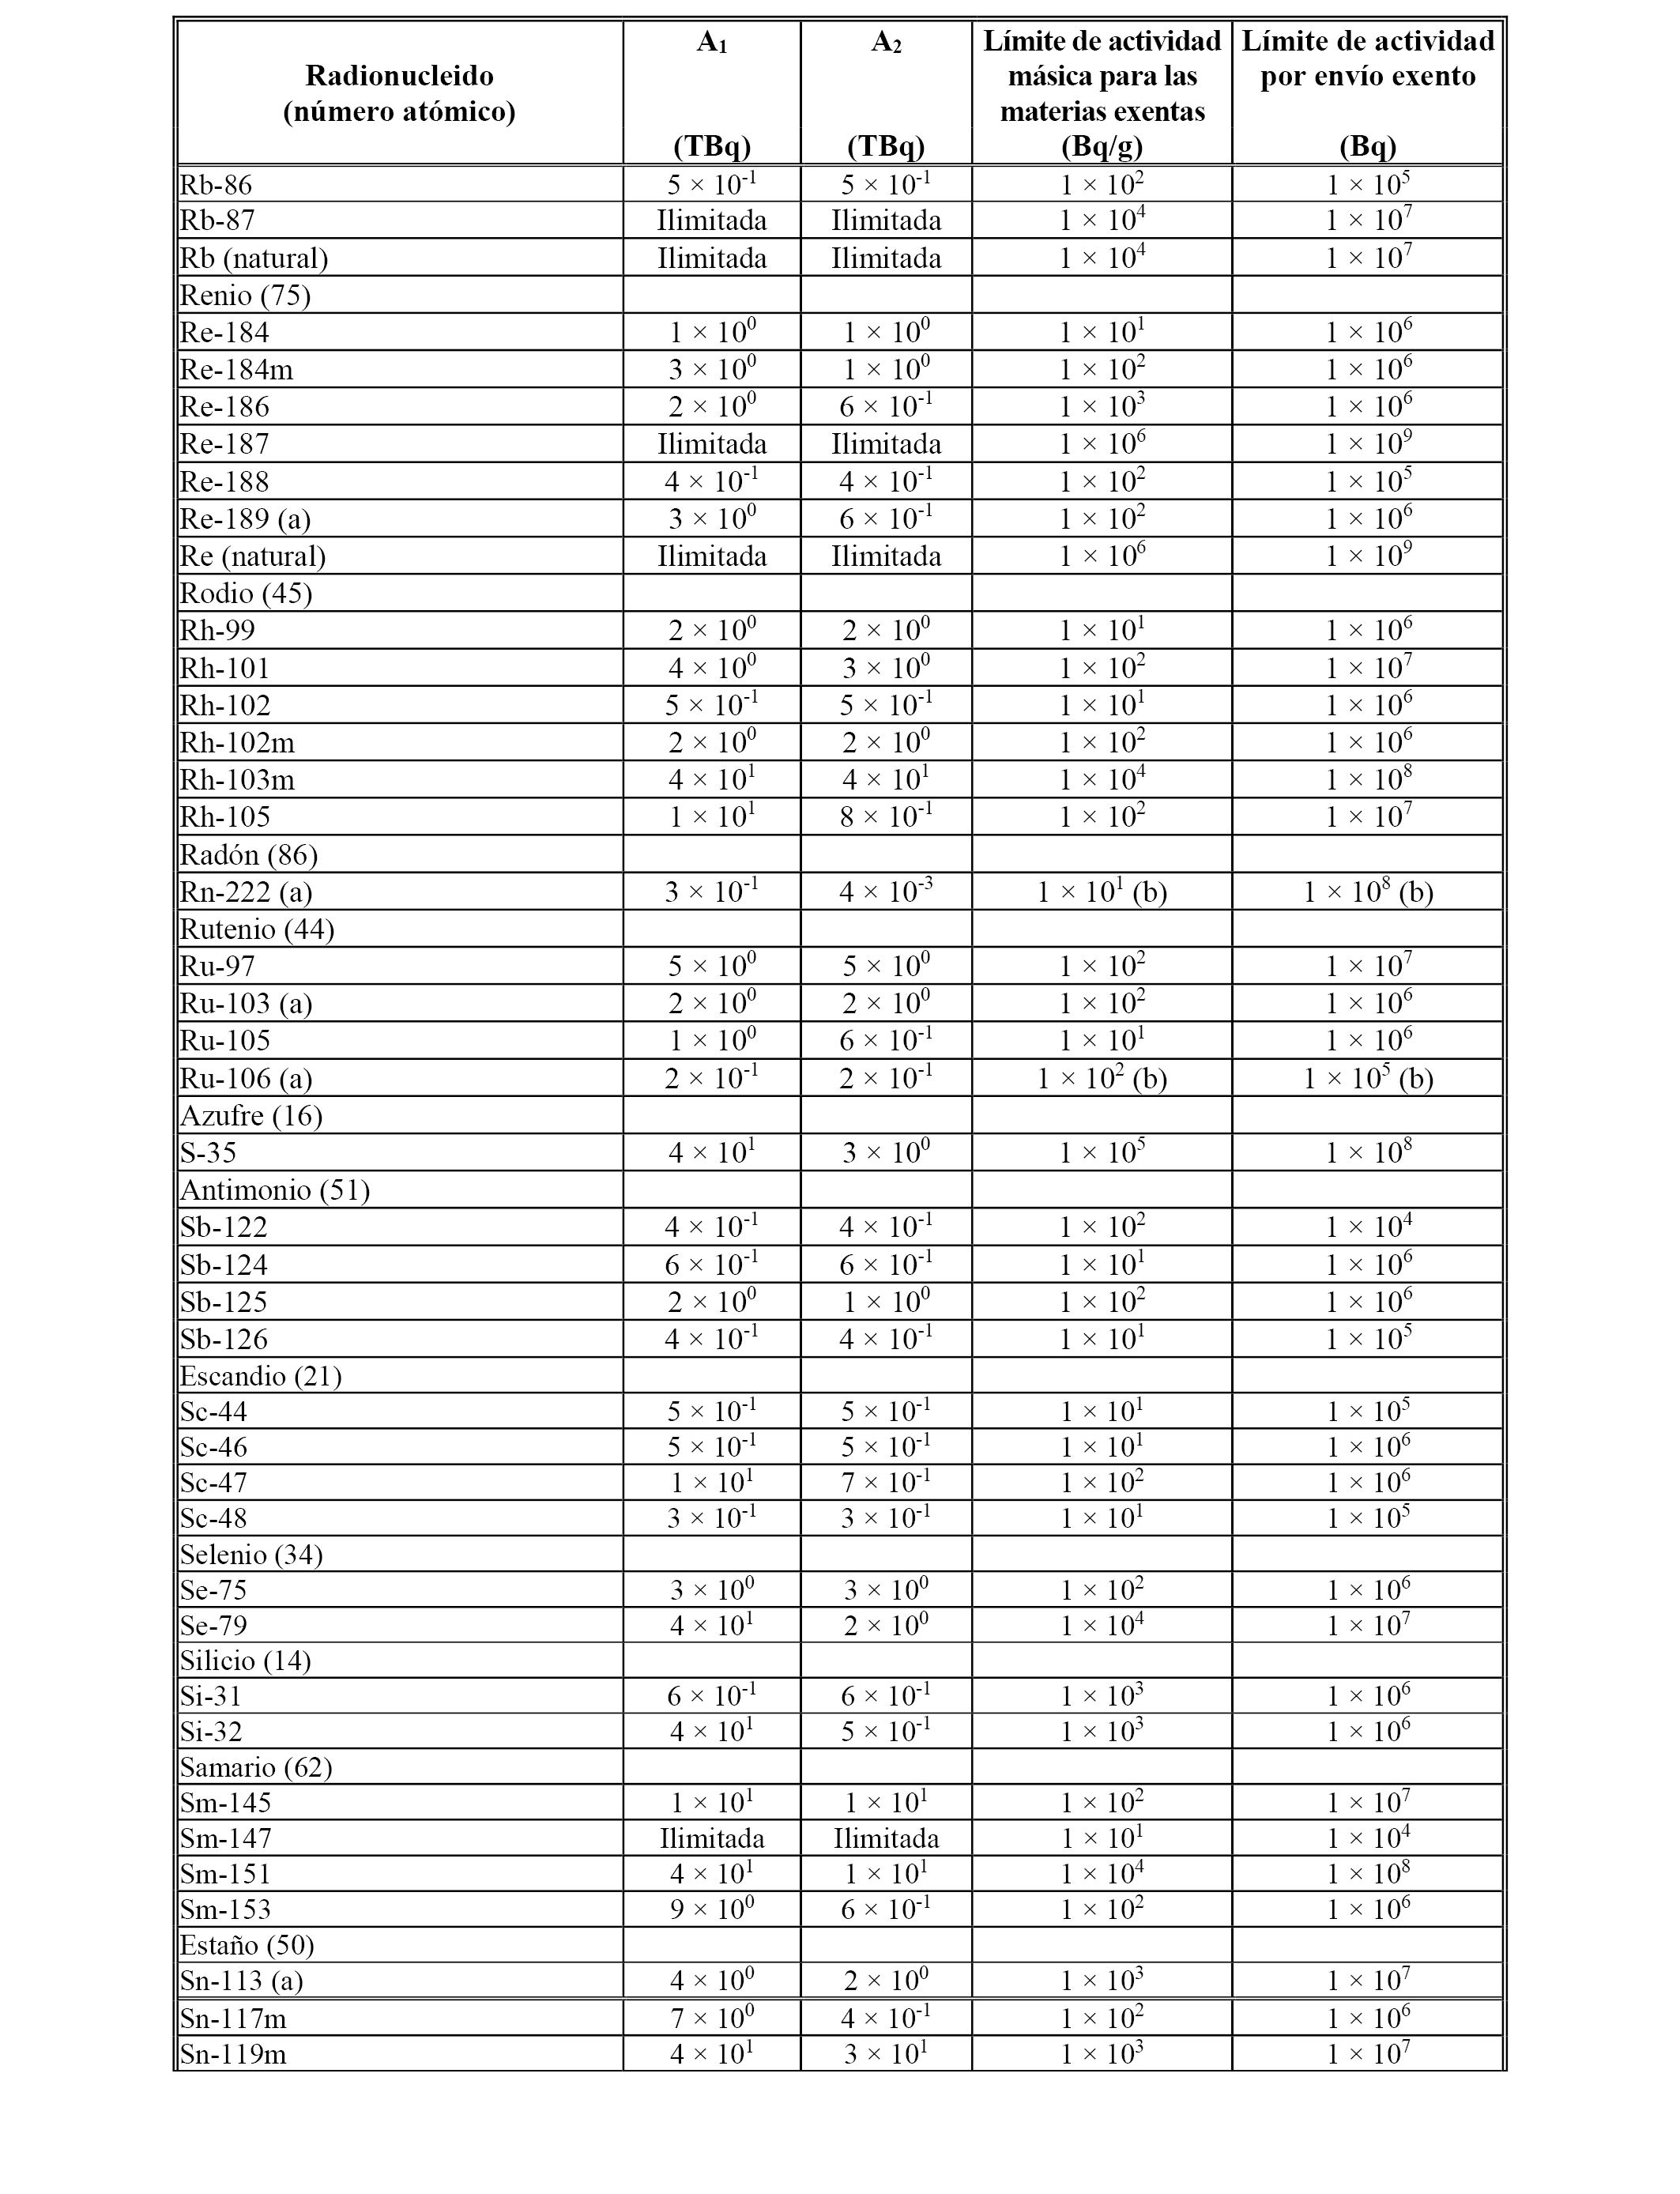 Radionucleido (número atómico) | A₁ (TBq) | A₂ (TBq) | Límite de actividad másica para las materias exentas (Bq/g) | Límite de actividad por envío exento (Bq)
Rb-86 | 5 × 10⁻¹ | 5 × 10⁻¹ | 1 × 10² | 1 × 10⁵
Rb-87 | Ilimitada | Ilimitada | 1 × 10⁴ | 1 × 10⁷
Rb (natural) | Ilimitada | Ilimitada | 1 × 10⁴ | 1 × 10⁷
Renio (75)
Re-184 | 1 × 10⁰ | 1 × 10⁰ | 1 × 10¹ | 1 × 10⁶
Re-184m | 3 × 10⁰ | 1 × 10⁰ | 1 × 10² | 1 × 10⁶
Re-186 | 2 × 10⁰ | 6 × 10⁻¹ | 1 × 10³ | 1 × 10⁶
Re-187 | Ilimitada | Ilimitada | 1 × 10⁶ | 1 × 10⁹
Re-188 | 4 × 10⁻¹ | 4 × 10⁻¹ | 1 × 10² | 1 × 10⁵
Re-189 (a) | 3 × 10⁰ | 6 × 10⁻¹ | 1 × 10² | 1 × 10⁶
Re (natural) | Ilimitada | Ilimitada | 1 × 10⁶ | 1 × 10⁹
Rodio (45)
Rh-99 | 2 × 10⁰ | 2 × 10⁰ | 1 × 10¹ | 1 × 10⁶
Rh-101 | 4 × 10⁰ | 3 × 10⁰ | 1 × 10² | 1 × 10⁷
Rh-102 | 5 × 10⁻¹ | 5 × 10⁻¹ | 1 × 10¹ | 1 × 10⁶
Rh-102m | 2 × 10⁰ | 2 × 10⁰ | 1 × 10² | 1 × 10⁶
Rh-103m | 4 × 10¹ | 4 × 10¹ | 1 × 10⁴ | 1 × 10⁸
Rh-105 | 1 × 10¹ | 8 × 10⁻¹ | 1 × 10² | 1 × 10⁷
Radón (86)
Rn-222 (a) | 3 × 10⁻¹ | 4 × 10⁻³ | 1 × 10¹ (b) | 1 × 10⁸ (b)
Rutenio (44)
Ru-97 | 5 × 10⁰ | 5 × 10⁰ | 1 × 10² | 1 × 10⁷
Ru-103 (a) | 2 × 10⁰ | 2 × 10⁰ | 1 × 10² | 1 × 10⁶
Ru-105 | 1 × 10⁰ | 6 × 10⁻¹ | 1 × 10¹ | 1 × 10⁶
Ru-106 (a) | 2 × 10⁻¹ | 2 × 10⁻¹ | 1 × 10² (b) | 1 × 10⁵ (b)
Azufre (16)
S-35 | 4 × 10¹ | 3 × 10⁰ | 1 × 10⁵ | 1 × 10⁸
Antimonio (51)
Sb-122 | 4 × 10⁻¹ | 4 × 10⁻¹ | 1 × 10² | 1 × 10⁴
Sb-124 | 6 × 10⁻¹ | 6 × 10⁻¹ | 1 × 10¹ | 1 × 10⁶
Sb-125 | 2 × 10⁰ | 1 × 10⁰ | 1 × 10² | 1 × 10⁶
Sb-126 | 4 × 10⁻¹ | 4 × 10⁻¹ | 1 × 10¹ | 1 × 10⁵
Escandio (21)
Sc-44 | 5 × 10⁻¹ | 5 × 10⁻¹ | 1 × 10¹ | 1 × 10⁵
Sc-46 | 5 × 10⁻¹ | 5 × 10⁻¹ | 1 × 10¹ | 1 × 10⁶
Sc-47 | 1 × 10¹ | 7 × 10⁻¹ | 1 × 10² | 1 × 10⁶
Sc-48 | 3 × 10⁻¹ | 3 × 10⁻¹ | 1 × 10¹ | 1 × 10⁵
Selenio (34)
Se-75 | 3 × 10⁰ | 3 × 10⁰ | 1 × 10² | 1 × 10⁶
Se-79 | 4 × 10¹ | 2 × 10⁰ | 1 × 10⁴ | 1 × 10⁷
Silicio (14)
Si-31 | 6 × 10⁻¹ | 6 × 10⁻¹ | 1 × 10³ | 1 × 10⁶
Si-32 | 4 × 10¹ | 5 × 10⁻¹ | 1 × 10³ | 1 × 10⁶
Samario (62)
Sm-145 | 1 × 10¹ | 1 × 10¹ | 1 × 10² | 1 × 10⁷
Sm-147 | Ilimitada | Ilimitada | 1 × 10¹ | 1 × 10⁴
Sm-151 | 4 × 10¹ | 1 × 10¹ | 1 × 10⁴ | 1 × 10⁸
Sm-153 | 9 × 10⁰ | 6 × 10⁻¹ | 1 × 10² | 1 × 10⁶
Estaño (50)
Sn-113 (a) | 4 × 10⁰ | 2 × 10⁰ | 1 × 10³ | 1 × 10⁷
Sn-117m | 7 × 10⁰ | 4 × 10⁻¹ | 1 × 10² | 1 × 10⁶
Sn-119m | 4 × 10¹ | 3 × 10¹ | 1 × 10³ | 1 × 10⁷